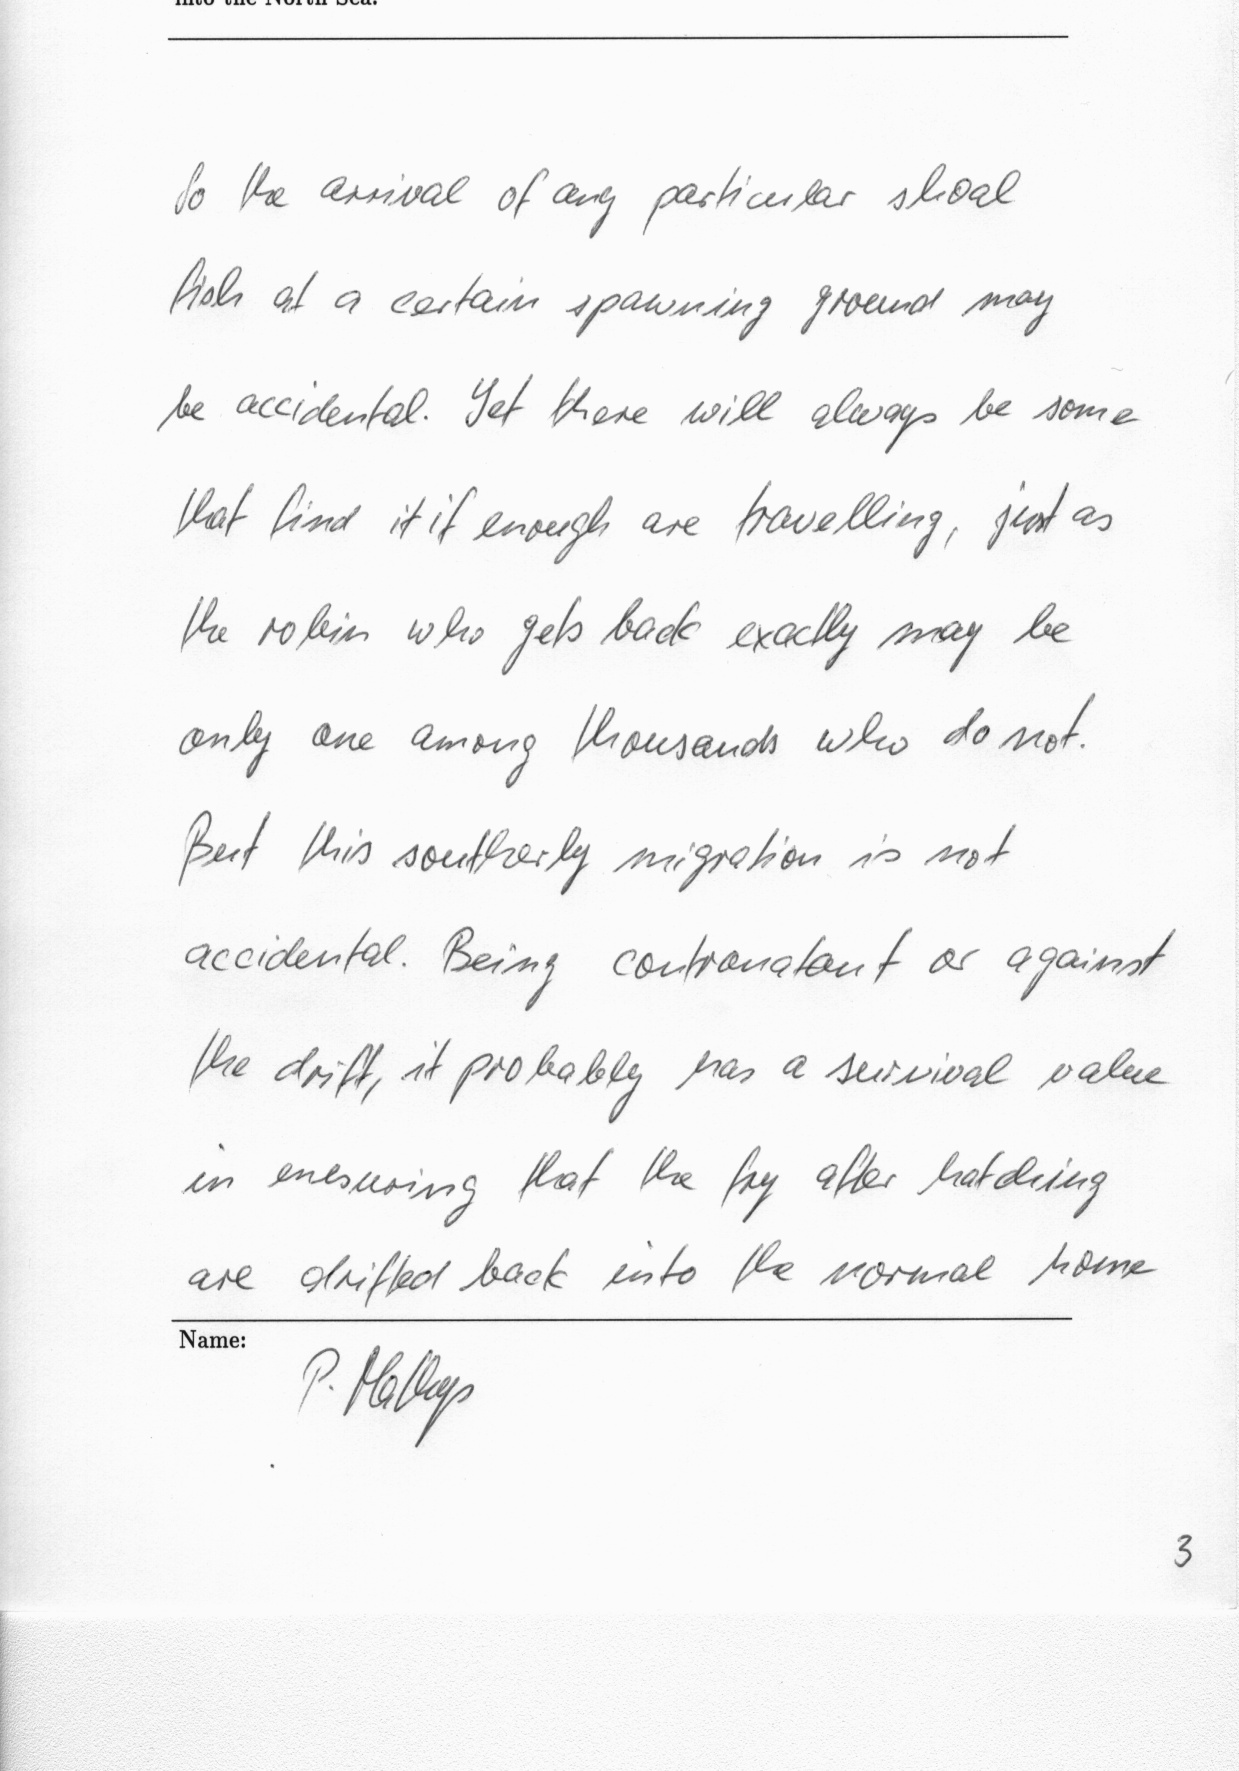 into the North Sea.
So the arrival of any particular shoal
fish at a certain spawning ground may
be accidental. Yet there will always be some
that find it if enough are travelling, just as
the robin who gets back exactly may be
only one among thousands who do not.
But this southerly migration is not
accidental. Being contranatant or against
the drift, it probably has a survival value
in enesuring that the fry after hatching
are drifted back into the normal home
Name:
P.
3